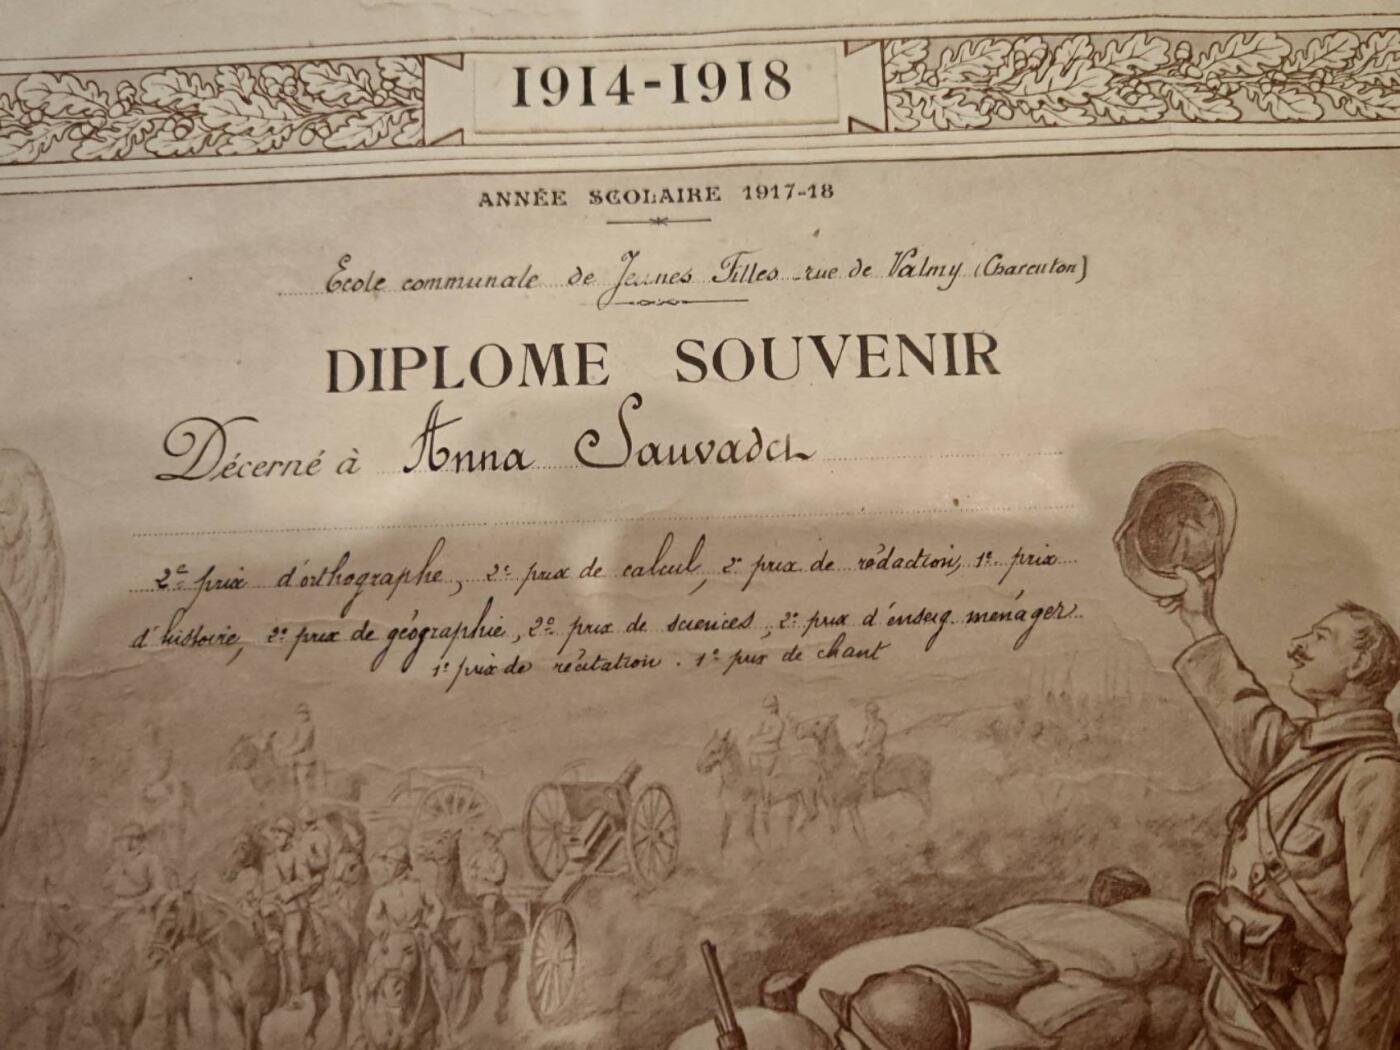 1914-1918
ANNÉE SCOLAIRE 1917-18
Ecole communale de Jeunes Filles rue de Valmy (Charenton)
DIPLOME SOUVENIR
Décerné à Anna Sauvadet
2e prix d'orthographe, 2e prix de calcul, 2e prix de rédaction, 1e prix
d'histoire, 2e prix de géographie, 2e prix de sciences, 2e prix d'enseig. ménager.
1e prix de récitation. 1e prix de chant